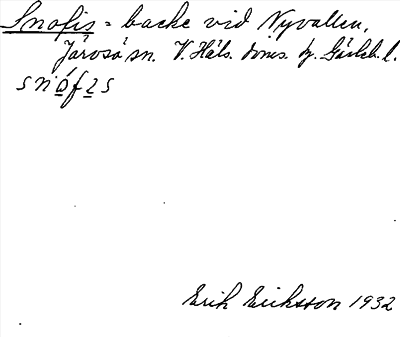 Snofis = backe vid Nyvallen,
Järvsö sn. V. Häls. doms. hd. Gävleb. l.
snófɩs
Erik Eriksson 1932